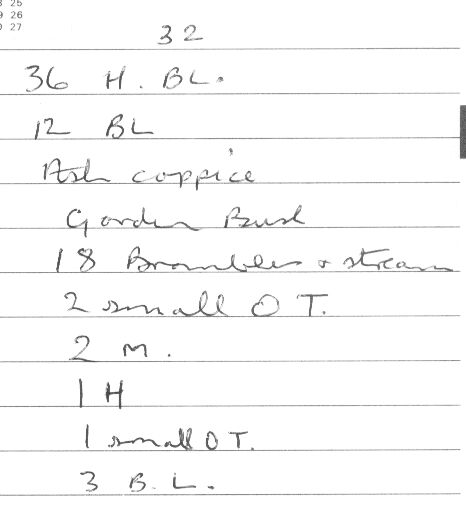 25
26
27
32
36 H. BL.
12 BL
Ash coppice
Garden Bush
18 Brambles & stream
2 small O T.
2 M.
1 H
1 small O T.
3 B. L.